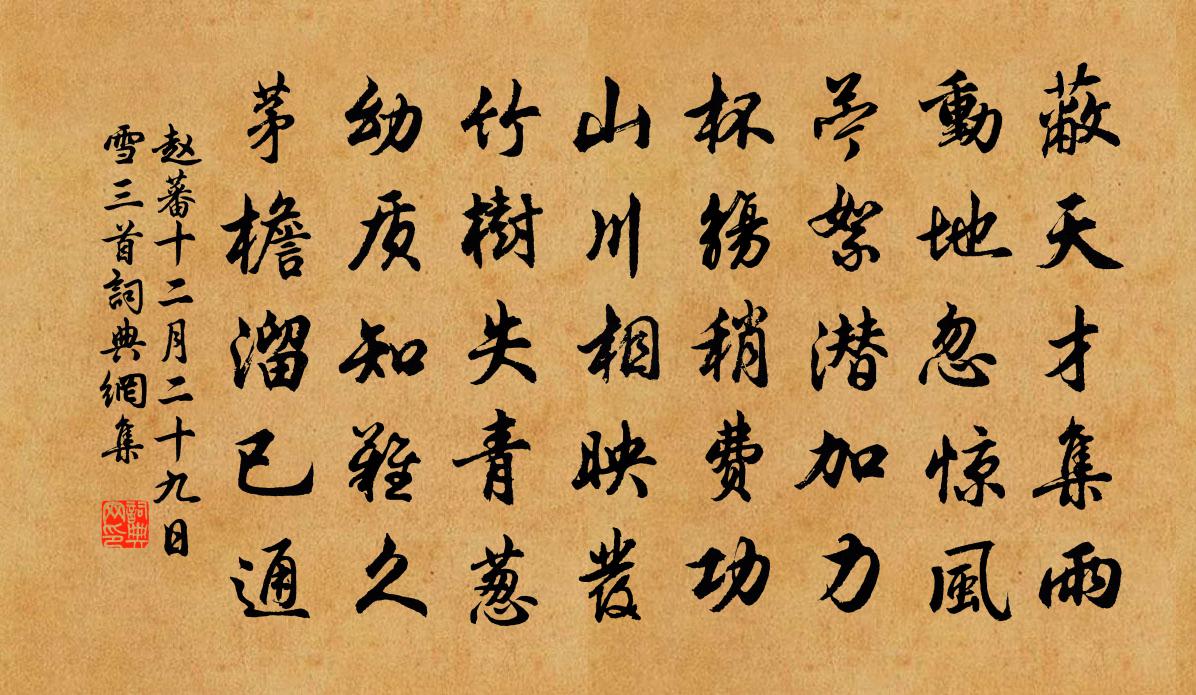 蔽天才集雨
動地忽惊風
絮潜加力
杯觴稍费功
山川相映發
竹樹失青葱
幼质知難久
茅檐溜已通
赵蕃十二月二十九日
雪三首詞典網集
詞典
网印